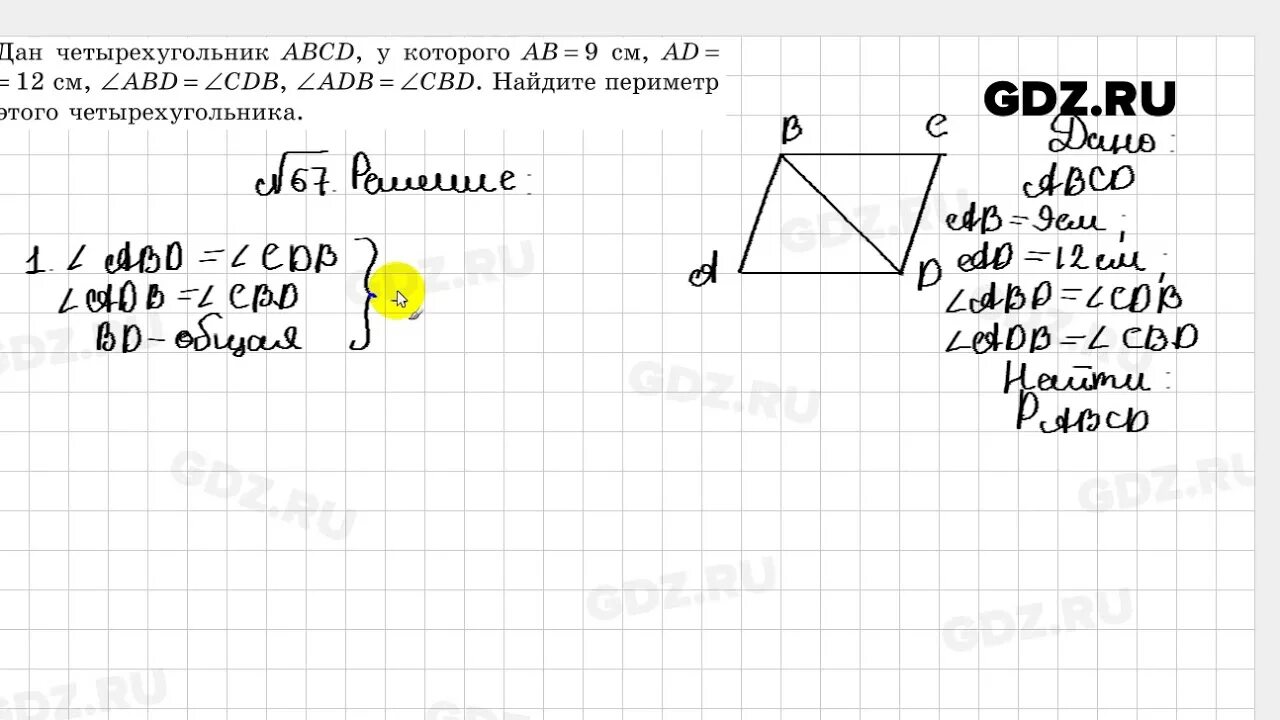 Дан четырехугольник ABCD, у которого AB = 9 см, AD =
= 12 см, ∠ABD = ∠CDB, ∠ADB = ∠CBD. Найдите периметр
этого четырехугольника.
GDZ.RU
№67. Решение:
1. ∠ABD = ∠CDB
∠ADB = ∠CBD
BD – общая
B C
A D
Дано:
ABCD
AB = 9см;
AD = 12см;
∠ABD = ∠CDB
∠ADB = ∠CBD
Найти:
P ABCD
GDZ.RU
GDZ.RU
GDZ.RU
GDZ.RU
GDZ.RU
GDZ.RU
GDZ.RU
GDZ.RU